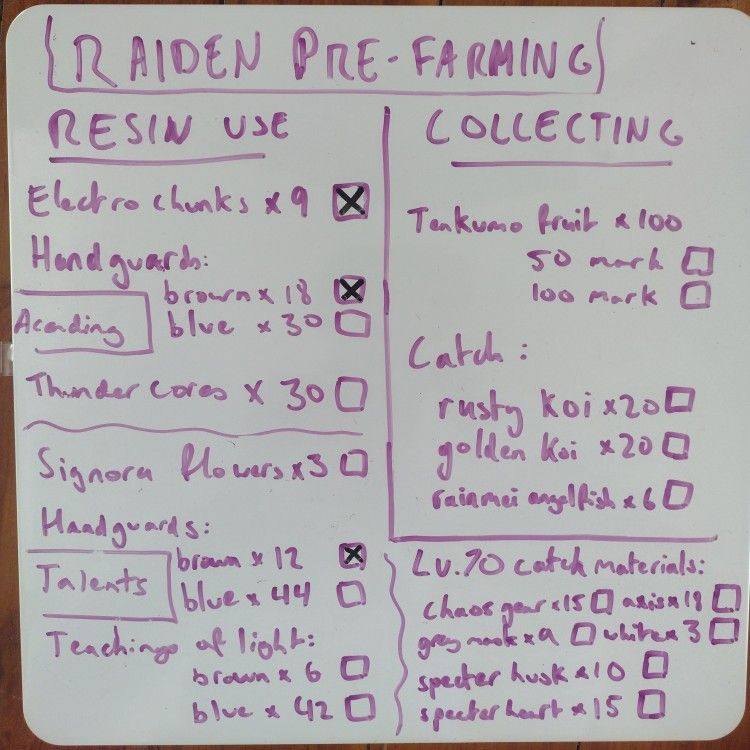 RAIDEN PRE-FARMING
RESIN USE
Electro chunks x 9
Handguards:
brown x 18
Acending
blue x 30
Thunder cores x 30
Signora flowers x3
Handguards:
brown x 12
Talents
blue x 44
Teachings of light:
brown x 6
blue x 42
COLLECTING
Tenkumo fruit x 100
50 mark
100 mark
Catch:
rusty koi x20
golden koi x20
raimei angelfish x 6
Lv.70 catch materials:
chaos gear x15 axis x18
grey mask x 9 white x 3
specter husk x10
specter heart x 15